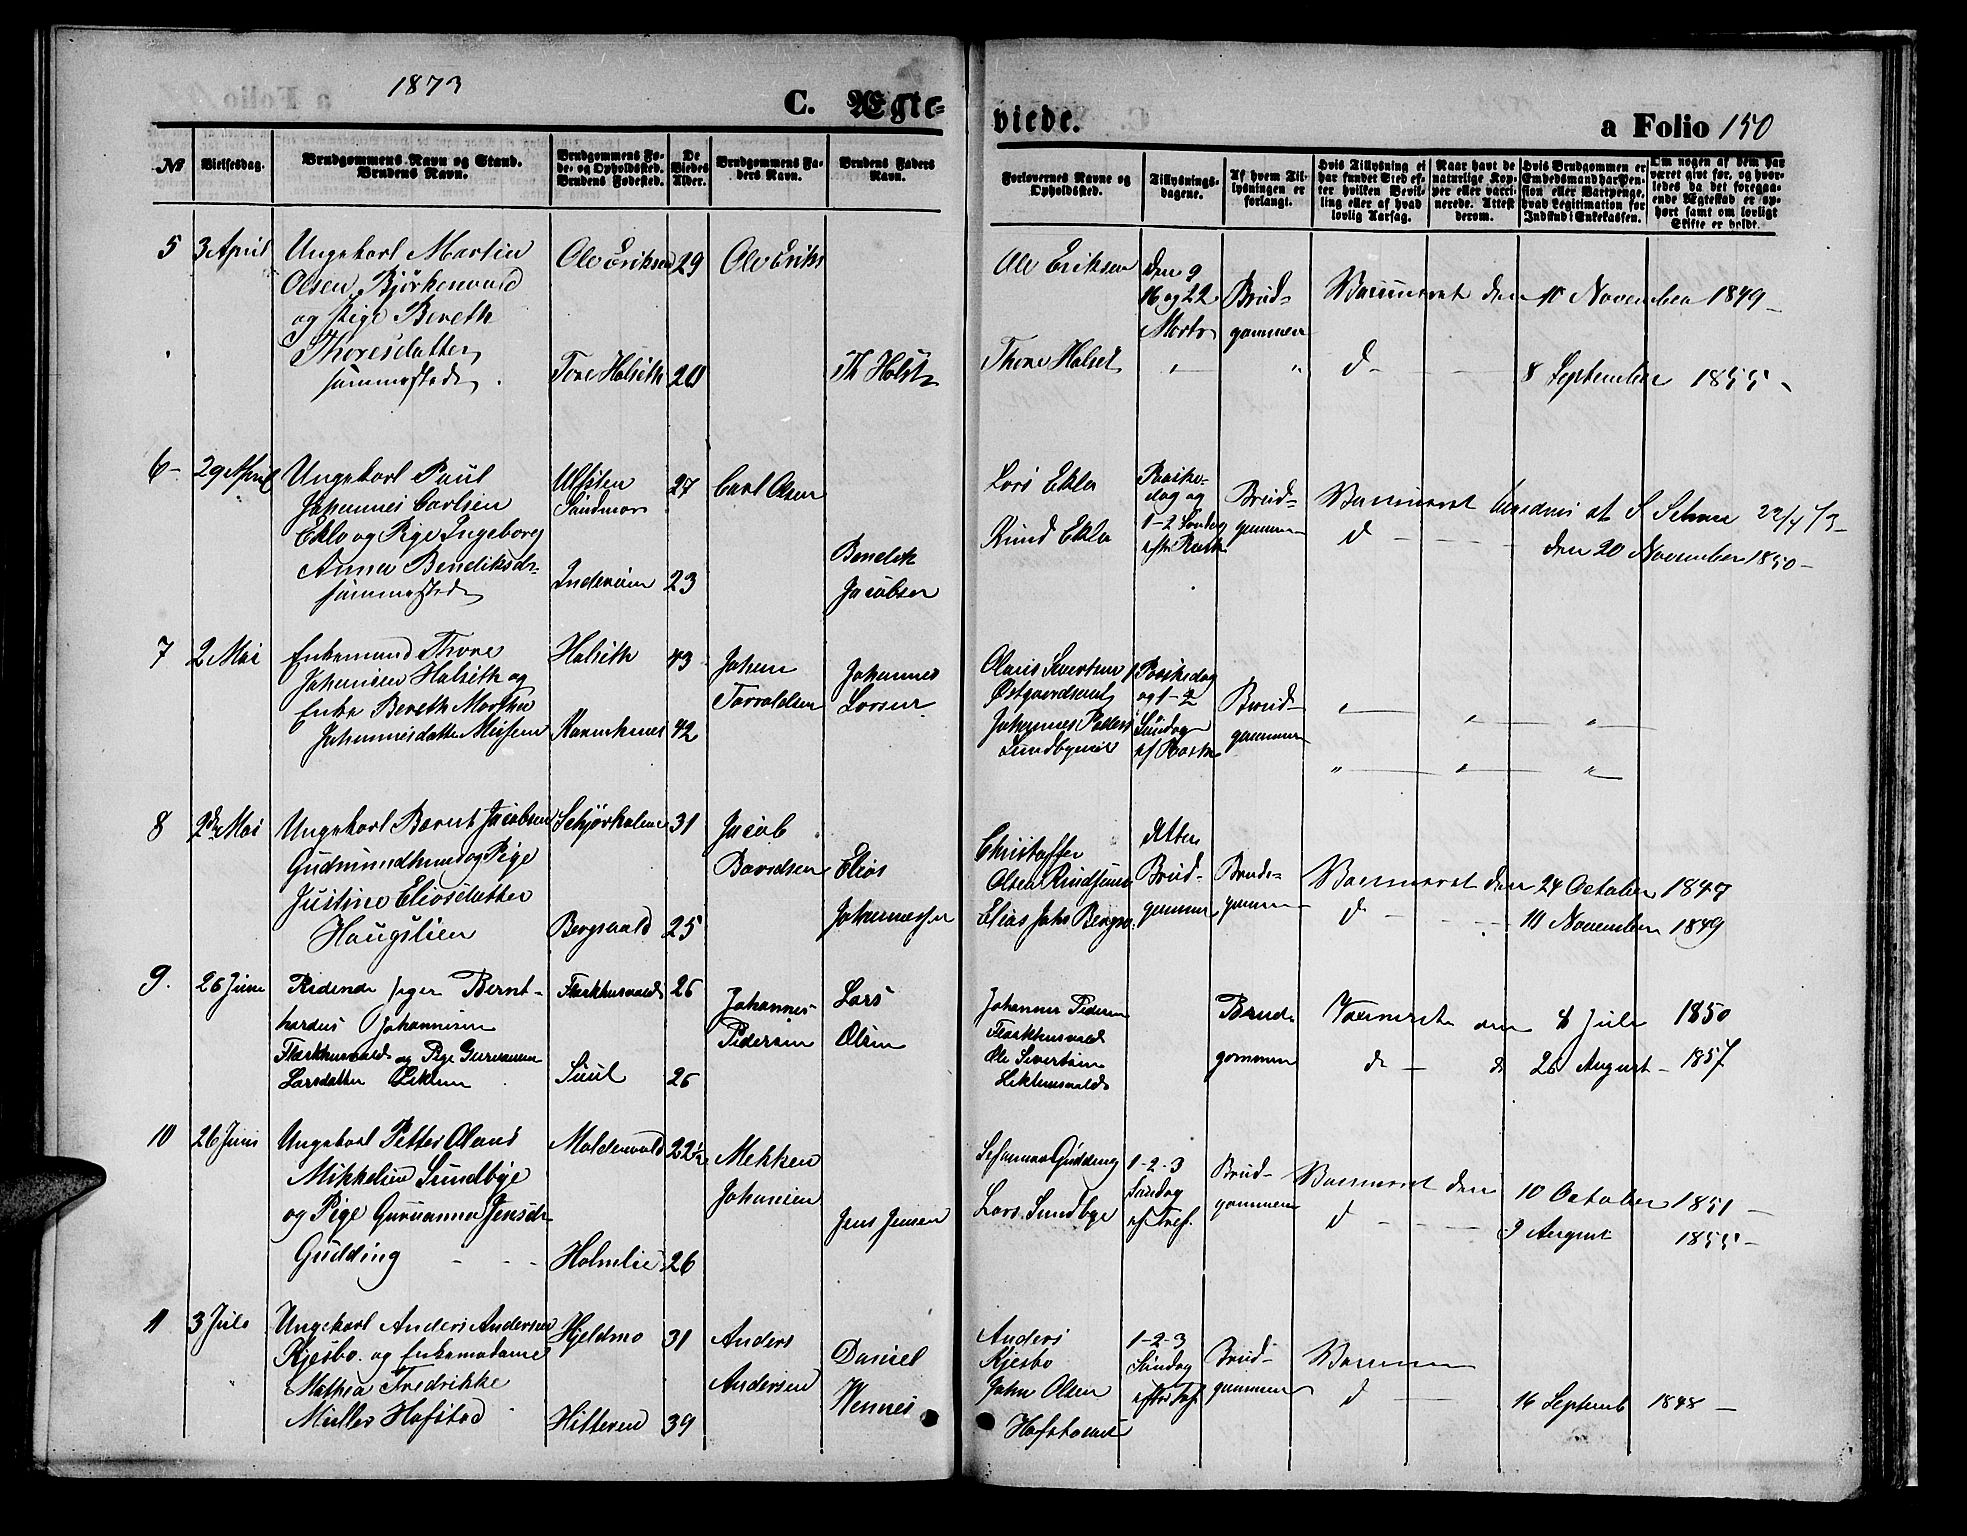 1873
C. Ægte-
viede.
a Folio 150
No
Vielsesdag.
Brudgommens Navn og Stand.
Brudens Navn.
Brudgommens Fø-
de- og Opholdssted.
Brudens Fødested.
De
Viedes
Alder.
Brudgommens Fa-
ders Navn.
Brudens Faders
Navn.
Forlovernes Navne og
Opholdssted.
Tillysnings-
dagene.
Af hvem Til-
lysningen er
forlangt.
Hvis Tillysning ei
har fundet Sted ef-
ter hvilken Bevil-
ling eller af hvad
lovlig Aarsag.
Naar havt de
naturlige Kop-
per eller vacci-
nerede. Attest
derom.
Hvis Brudgommen er
Embedsmand har Pen-
sion eller Vartpenge,
hvad Legitimation for
Indskud i Enkekassen.
Om nogen af dem har
været gift før, og hvor-
ledes da det foregaa-
ende Ægteskab er op-
hørt samt om lovligt
Skifte er holdt.
5
3 April
Ungekarl Martin
Olsen Bjørkenvald
og Pige Bereth
Thoresdatter
sammesteds
Ole Eriksen
29
Ole Eriks
Tore Halseth
20
Ole Eriksen
Den 9
16 og 22
Marts
Brud-
gommen
Vacineret den 10 November 1849
Thore Halset
d
8 September 1855
6
29 April
Ungekarl Paul
Johannes Carlsen
Eklo og Pige Ingeborg
Anna Bendiksdr
sammesteds
Ulfsten
Søndmør
27
Carl Olsen
Inderøen
23
Bendik
Jacobsen
Lars Eklo
Knud Eklo
Paaske-
dag og
1-2 Søndag
efter Paaske
Brud-
gommen
Vacineret
d
den 20 November 1850
7
2 Mai
Enkemand Thore
Johansen Halseth og
Enke Bereth Martha
Johannesdatter
Halseth
43
Johan
Torvaldsen
Johannes
Larsen
42
Olaus Sivertsen
Johannes Peders
1 Paaskedag
og 1-2
Søndag
ef Paaske
Brud-
gommen
8
2den Mai
Ungekarl Bærnt Jacobsen
Gudmundhus og Pige
Justine Eliasdatter
Haugslien
Schjørholmen
31
Jacob
Elias
Johannessen
Bergsaald
25
Christoffer
Olsen
Elias Johs
Atten
Brud-
gommen
Brud-
gommen
Vacineret den 24 October 1847
d
10 November 1849
9.
26 Juni
Ridende Jeger Bernt-
hardus Johannesen
Flækkhusvald og Pige Gurianna
Larsdatter
Flækkhusvald
26
Johannes
Pedersen
Lars
Olsen
Suul
26
Johannes Pedersen
Flækkhusvald
Ole Sivertsen
Brud-
gommen
Vacineret den 8 Juli 1850
d d 26 August 1857
10
26 Juni
Ungekarl Petter Oland
Mikkelsen Sundbye
og Pige Gurianna Jensdr
Gudding
22½
Mekken
Johansen
Jens Jensen
Holmlie
26
Gudding
Lars Sundbye
1-2-3
Søndag
ef Tref.
Brud-
gommen
Vacineret den 10 October 1851
d
9 August 1855
11
3 Juli
Ungekarl Anders Andersen
Kjesbo og Enkemadame
Mathea Fredrikke
Müller Hofstad
Hjeldmo
31
Anders
Andersen
Daniel
Hitteren
39
Anders
Kjesbo
John Olsen
1-2-3
Søndag
Brud-
gommen
d
16 Septemb 1848